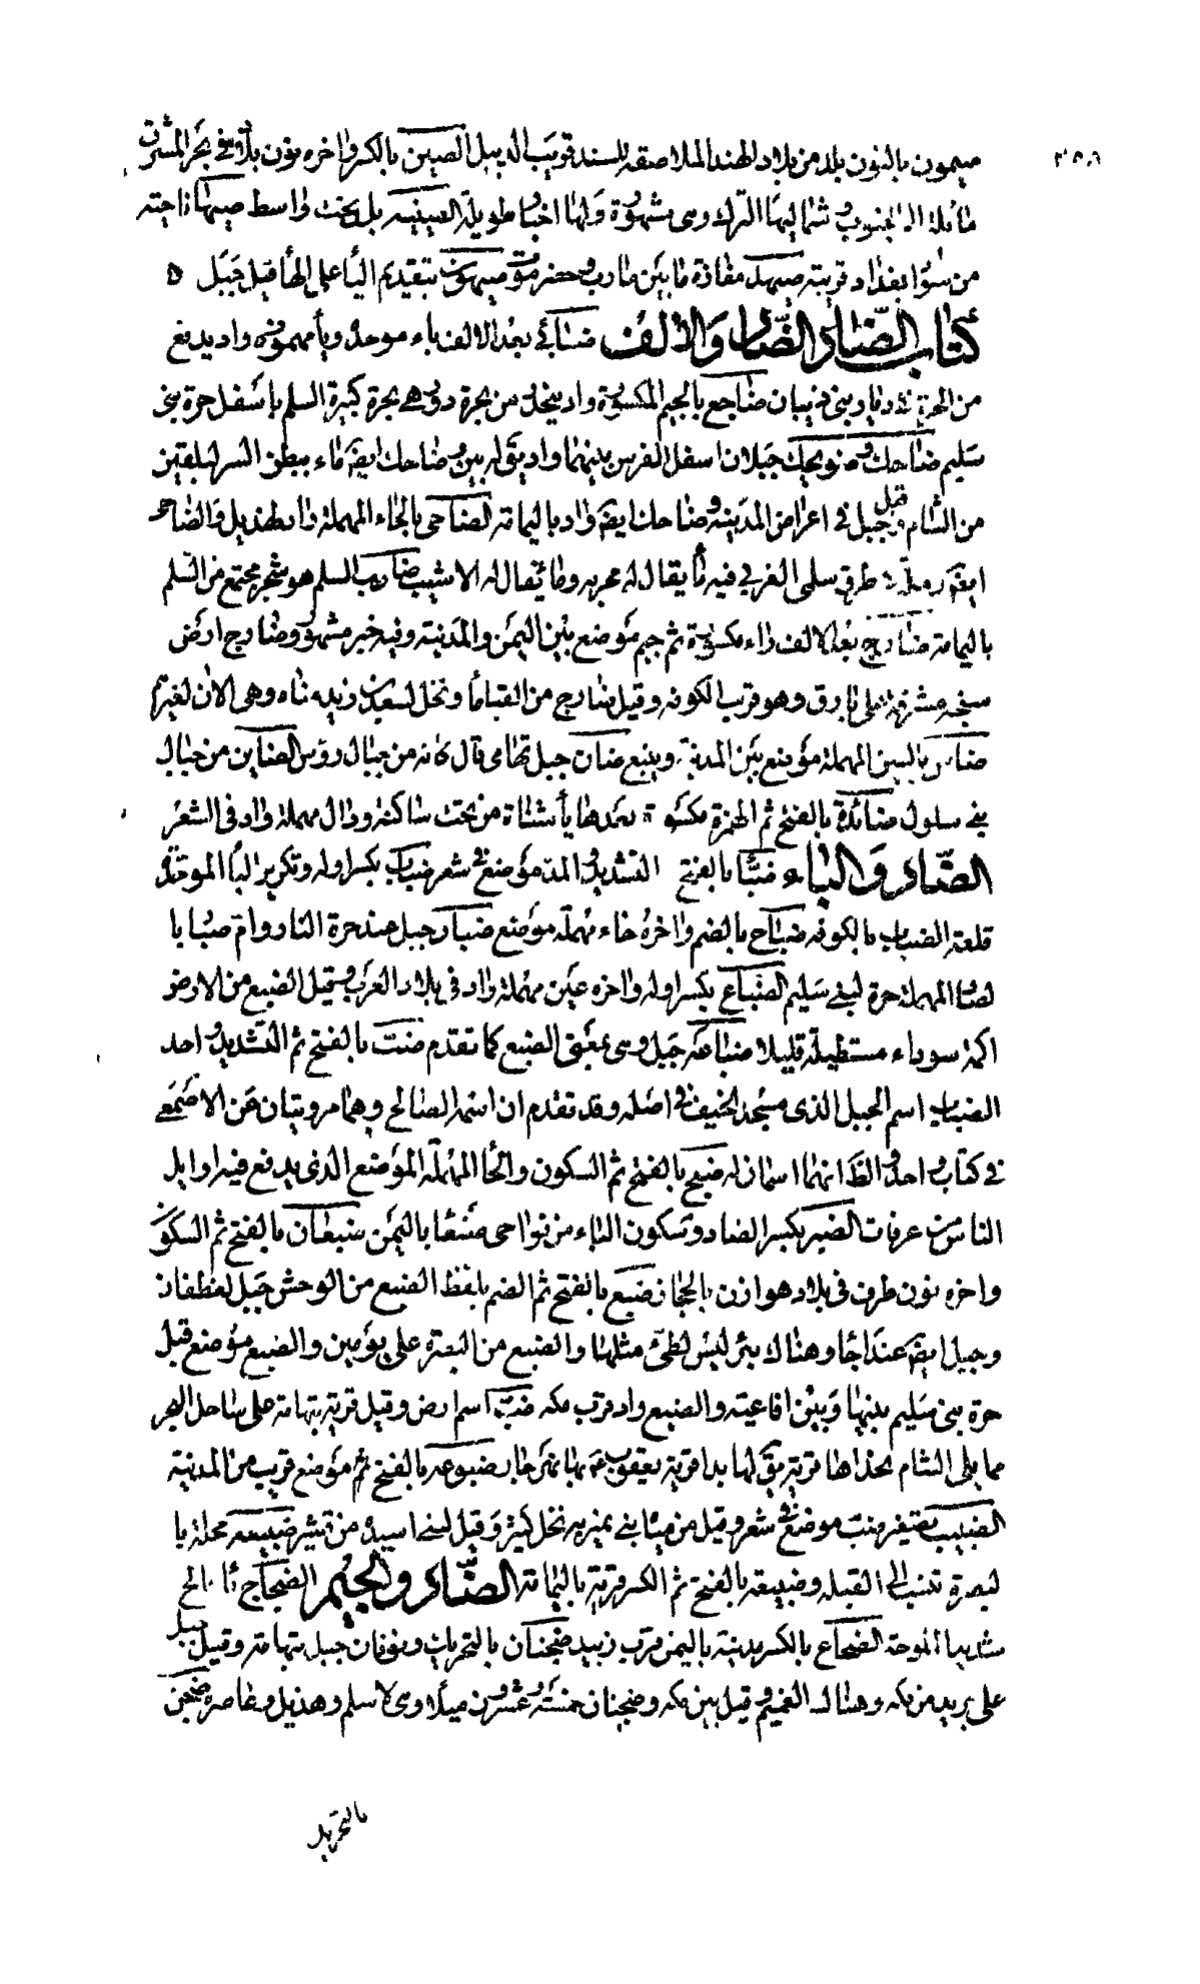 ٢٥٨
صيمون بالنون بلد من بلاد الهند الملاصقه للسند قريب الديبل الصين بالكسر واخره نون بلاد في بحر المشرق
مائلة الى الجنوب و شماليها الترك وهى مشهورة ولها اخبار طويلة الصينية بليد تحت واسط صيهاناحيته
من سواد بغداد قريته صيهد مفازة ما بين مارب وحضرموت صيهون بتقديم اليا على الها قيل جبل ه
كتاب الضاد الضاد والالف ضابئ بعد الالف باء موحدة وياء مهموزه واد يدفع
من الحرة في ديار بنى ذبيان ضاجع بالجيم المكسورة واد ينحدر من بحرة در وهى بحرة كثيرة السلم باسفل حرة بنى
سليم ضاحك و ضويحك جبلان اسفل الفرش بينهما واد يق له يين وضاحك ايضا ماء ببطن السر لبلقين
من الشام وقيل جبل في اعراض المدينه وضاحك ايضا واد باليمامة الضاحى بالحاء المهملة واد لهذيل والضاحى
ايضا رملة في طرف سلمى الغربي فيه ماء يقال له محرمه وماء يقال له الاشيب ضارب السلم هو شجر مجتمع من السلم
باليمامة ضارج بعد الالف راء مكسورة ثم جيم موضع بين اليمن والمدينة وفيه خبر مشهور وضارج ارض
سبخه مشرفة على بارق وهو قرب الكوفه وقيل ضارج من النقا ماء ونخل لسعد بن زيد مناه وهى الان لغيرهم
ضاس بالسين المهملة موضع بين المدينة وينبع ضان جبل تهامى قال كانه من جبال دوس الضاين من جبال
بنى سلول ضائدة بالفتح ثم الهمزة مكسورة بعدها يا مثناة من تحت ساكنه ودال مهملة واد فى الشعر
الضاد والباء ضبا بالفتح التشديد و المد موضع في شعر ضباب بكسر اوله وتكرير البا الموحدة
قلعة الضباب بالكوفه ضباح بالضم واخره حاء مهملة موضع ضبار جبل عند حرة النار وام صبا با
لصاد المهملة حرة لبنى سليم الضباع بكسر اوله واخره عين مهملة واد في بلاد العرب وقيل الضبع من الارض
اكمة سوداء مستطيلة قليلا ضباعة جبل وهى بمعنى الضبع كما تقدم ضب بالفتح ثم التشديد و احد
الضباب اسم الجبل الذى مسجد الخيف في اصله وقد تقدم ان اسمه الصالح وهما مرويتان عن الاصمعى
في كتاب واحد و الظاهر انهما اسمان له ضبح بالفتح ثم السكون والحا المهملة الموضع الذى يدفع فيه اوايل
الناس من عرفات الضبر بكسر الضاد وسكون الباء من نواحى صنعا باليمن ضبعان بالفتح ثم السكون
واخره نون طرف فى بلاد هوازن بالحجاز ضبع بالفتح ثم الضم بلفظ الضبع من الوحش جبل لغطفان
وجبل ايضا عند اجا وهناك بئر ليس لطئ مثلها والضبع من البصرة على يومين والضبع موضع قبل
حرة بنى سليم بينها وبين افاعيته والضبع واد قرب مكه ضبة اسم ارض وقيل قرية بتهامة على ساحل البحر
مما يلى الشام بحذاها قرية يق لها بدا قرية يعقوب عم بها نهر جار ضبوعه بالفتح ثم موضع قريب من المدينة
الضبيب تصغير ضب موضع في شعر وقيل من مياه بنى نمير به نخل كثير وقيل لبنى اسيدة من قشير ضبيعه محلة با
لبصرة تنسب الى القبله وضبيعة بالفتح ثم الكسر قرية باليمامة الضاد والجيم الضجاج
الضجاع بالكسر مدينة باليمن قرب زبيد ضجنان بالتحريك ونونان جبل بتهامة وقيل جبل
على بريد من مكه وهناك الغميم وقيل بين مكه وضجنان خمسة وعشرون ميلا وهى لاسلم وهذيل وغاضرة ضجن
بالتحريك